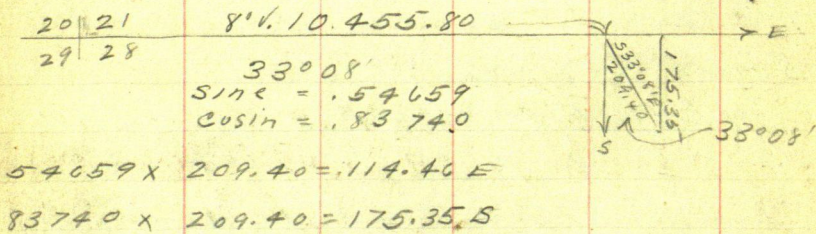 20 21 8"V. 10.455.80 E
29 28
33°08'
sine = .54659
cosin = .83740
S33°08'E
209.40
175.35
33°08'
S
54659 x 209.40 = 114.46 E
83740 x 209.40 = 175.35 S